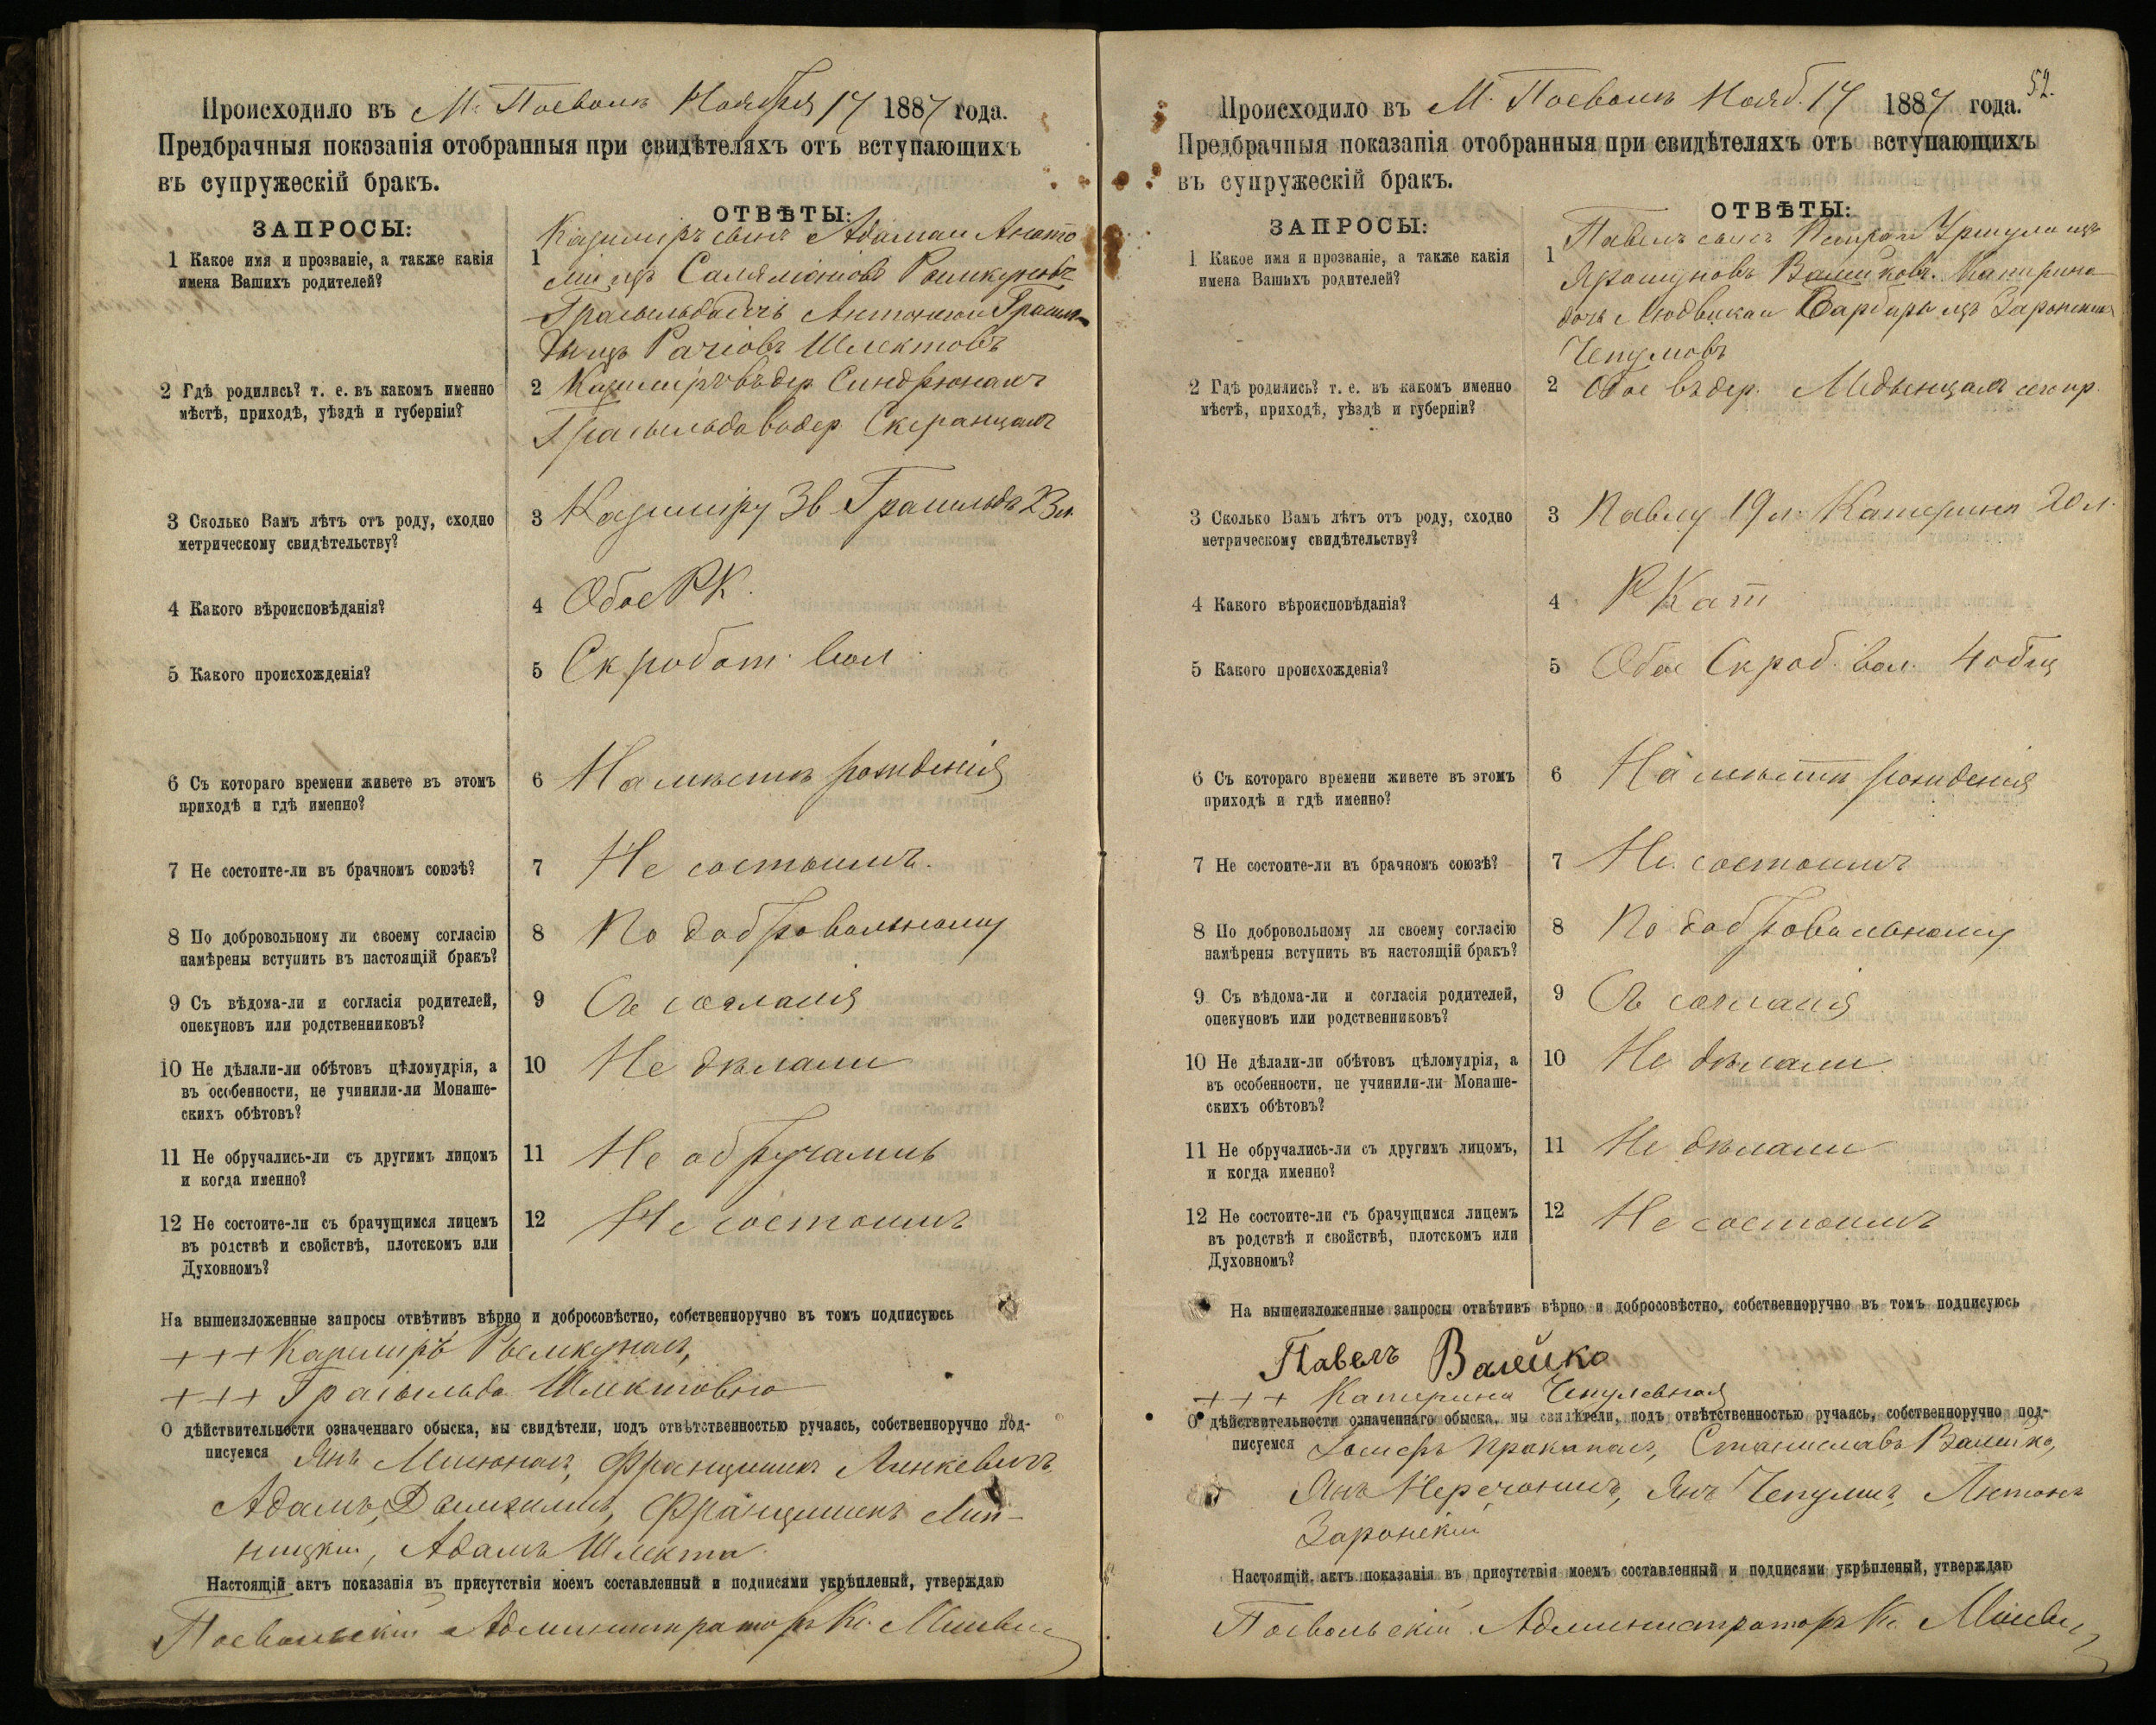 Происходило въ М. Поеволь Ноября 17 1887 года.
Предбрачныя показанія отобранныя при свидѣтеляхъ отъ вступающихъ
въ супружескій бракъ.
ЗАПРОСЫ:
ОТВѢТЫ:
1 Какое имя и прозваніе, а также какія
имена Вашихъ родителей?
1 Казимиръ сынъ Адама и
изъ
Антонія и
изъ Шлектовъ
2 Гдѣ родились? т. е. въ какомъ именно
мѣстѣ, приходѣ, уѣздѣ и губерніи?
2 Казимиръ въ дер. Синдрюнахъ
въ дер. Скранцахъ
3 Сколько Вамъ лѣтъ отъ роду, сходно
метрическому свидѣтельству?
3 Казимиру 36 23 л.
4 Какого вѣроисповѣданія?
4 Обое Р К.
5 Какого происхожденія?
5 Скробот. вол.
6 Съ котораго времени живете въ этомъ
приходѣ и гдѣ именно?
6 На мѣстѣ рожденія
7 Не состоите-ли въ брачномъ союзѣ?
7 Не состоимъ.
8 По добровольному ли своему согласію
намѣрены вступить въ настоящій бракъ?
8 По добровольному
9 Съ вѣдома-ли и согласія родителей,
опекуновъ или родственниковъ?
9 Съ согласія
10 Не дѣлали-ли обѣтовъ цѣломудрія, а
въ особенности, не учинили-ли Монаше-
скихъ обѣтовъ?
10 Не дѣлали
11 Не обручались-ли съ другимъ лицомъ
и когда именно?
11 Не обручались
12 Не состоите-ли съ брачущимся лицемъ
въ родствѣ и свойствѣ, плотскомъ или
Духовномъ?
12 Не состоимъ
На вышеизложенные запросы отвѣтивъ вѣрно и добросовѣстно, собственноручно въ томъ подписуюсь
+++ Казимиръ
+++
О дѣйствительности означеннаго обыска, мы свидѣтели, подъ отвѣтственностью ручаясь, собственноручно под-
писуемся Янъ Францишекъ Линкевичъ
Адамъ Францишекъ Лип-
ницкій, Адамъ Шлекта
Настоящій актъ показанія въ присутствіи моемъ составленный и подписями укрѣпленый, утверждаю
Поевольскій Администраторъ Кс.
52.
Происходило въ М. Поеволь Нояб. 17 1887 года.
Предбрачныя показанія отобранныя при свидѣтеляхъ отъ вступающихъ
въ супружескій бракъ.
ЗАПРОСЫ:
ОТВѢТЫ:
1 Какое имя и прозваніе, а также какія
имена Вашихъ родителей?
1 Павелъ сынъ Петра и Уршули изъ
Ярошуновъ Валейковъ. Катерина
дочь Людвика и Барбары изъ Заронскихъ
Чепулювъ
2 Гдѣ родились? т. е. въ какомъ именно
мѣстѣ, приходѣ, уѣздѣ и губерніи?
2 Обое въ дер. сего пр.
3 Сколько Вамъ лѣтъ отъ роду, сходно
метрическому свидѣтельству?
3 Павлу 19 л. Катеринѣ 20 л.
4 Какого вѣроисповѣданія?
4 Р Кат
5 Какого происхожденія?
5 Обое Скроб. вол. 4 общ
6 Съ котораго времени живете въ этомъ
приходѣ и гдѣ именно?
6 На мѣстѣ рожденія
7 Не состоите-ли въ брачномъ союзѣ?
7 Не состоимъ
8 По добровольному ли своему согласію
намѣрены вступить въ настоящій бракъ?
8 По добровольному
9 Съ вѣдома-ли и согласія родителей,
опекуновъ или родственниковъ?
9 Съ согласія
10 Не дѣлали-ли обѣтовъ цѣломудрія, а
въ особенности, не учинили-ли Монаше-
скихъ обѣтовъ?
10 Не дѣлали
11 Не обручались-ли съ другимъ лицомъ,
и когда именно?
11 Не дѣлали
12 Не состоите-ли съ брачущимся лицемъ
въ родствѣ и свойствѣ, плотскомъ или
Духовномъ?
12 Не состоимъ
На вышеизложенные запросы отвѣтивъ вѣрно и добросовѣстно, собственноручно въ томъ подписуюсь
Павелъ Валейко
+++ Катерина
О дѣйствительности означеннаго обыска, мы свидѣтели, подъ отвѣтственностью ручаясь, собственноручно под-
писуемся Станиславъ Валейко,
Янъ Янъ Антонъ
Заронскій
Настоящій актъ показанія въ присутствія моемъ составленный и подписями укрѣпленый, утверждаю
Поевольскій Администраторъ Кс.